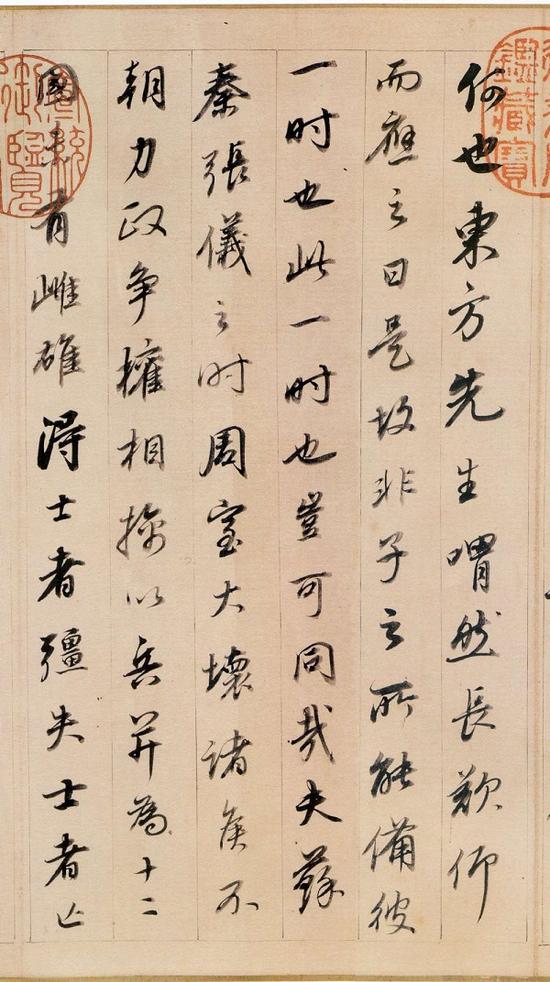 鑑藏寶
何也東方先生喟然長歎仰
而應之曰是故非子之所能備彼
一時也此一時也豈可同哉夫蘇
秦張儀之時周室大壞諸侯不
朝力政争權相擒以兵并為十二
國未有雌雄得士者彊失士者亡
御覽